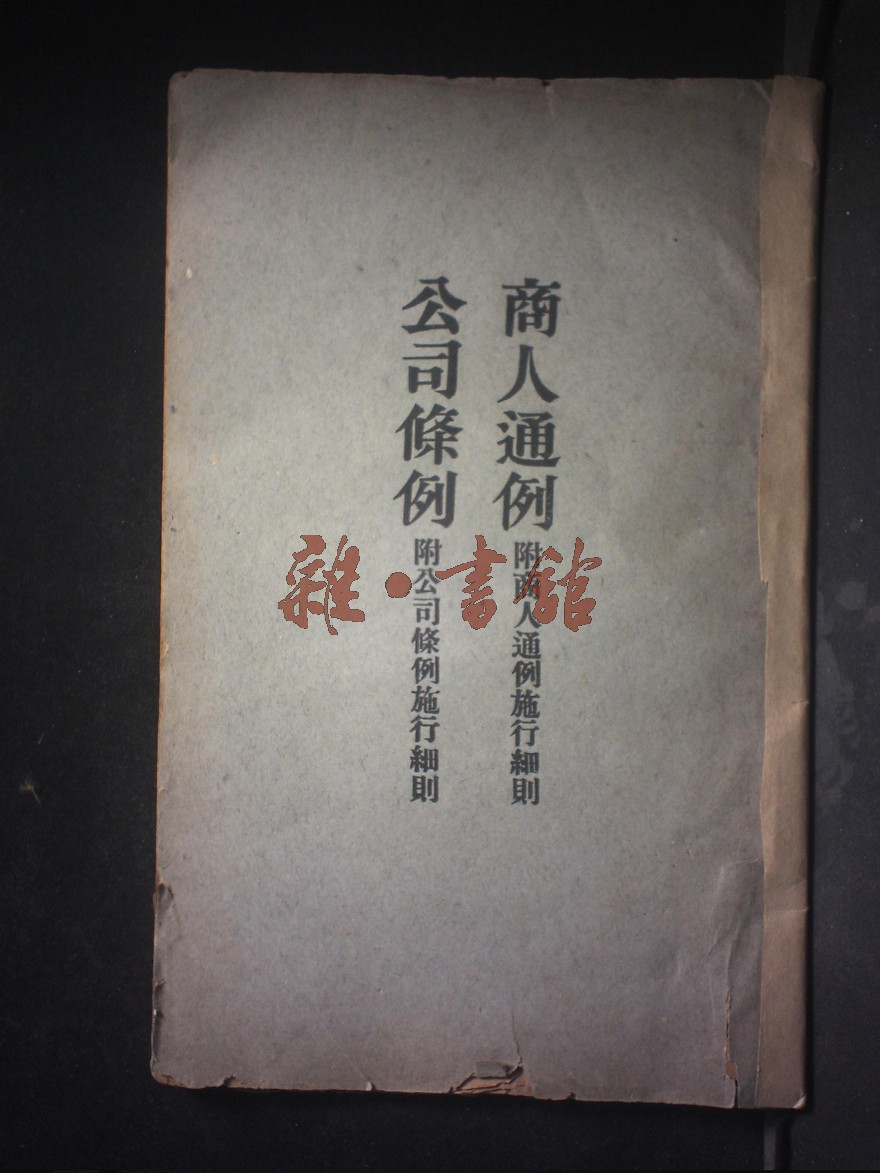 商人通例 附商人通例施行細則
公司條例 附公司條例施行細則
雜·書館